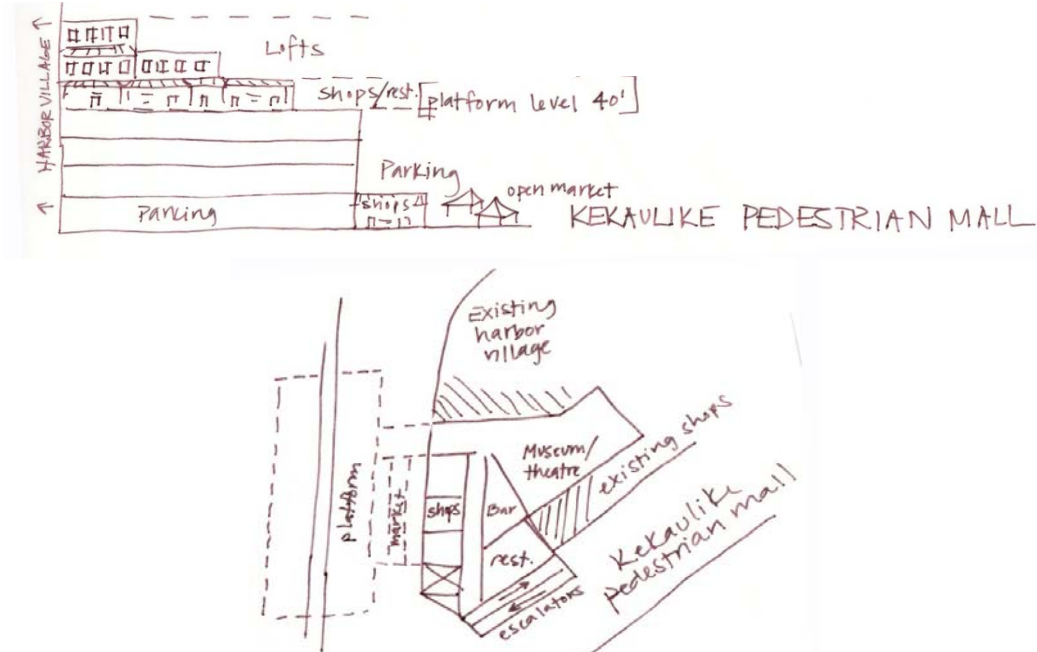 HARBOR VILLAGE
Lofts
shops/rest. [platform level 40']
Parking
Parking
shops
open market
KEKAULIKE PEDESTRIAN MALL
Existing
harbor
village
platform
market
shops
Museum/
theatre
Bar
rest.
existing shops
escalators
Kekaulike
pedestrian mall